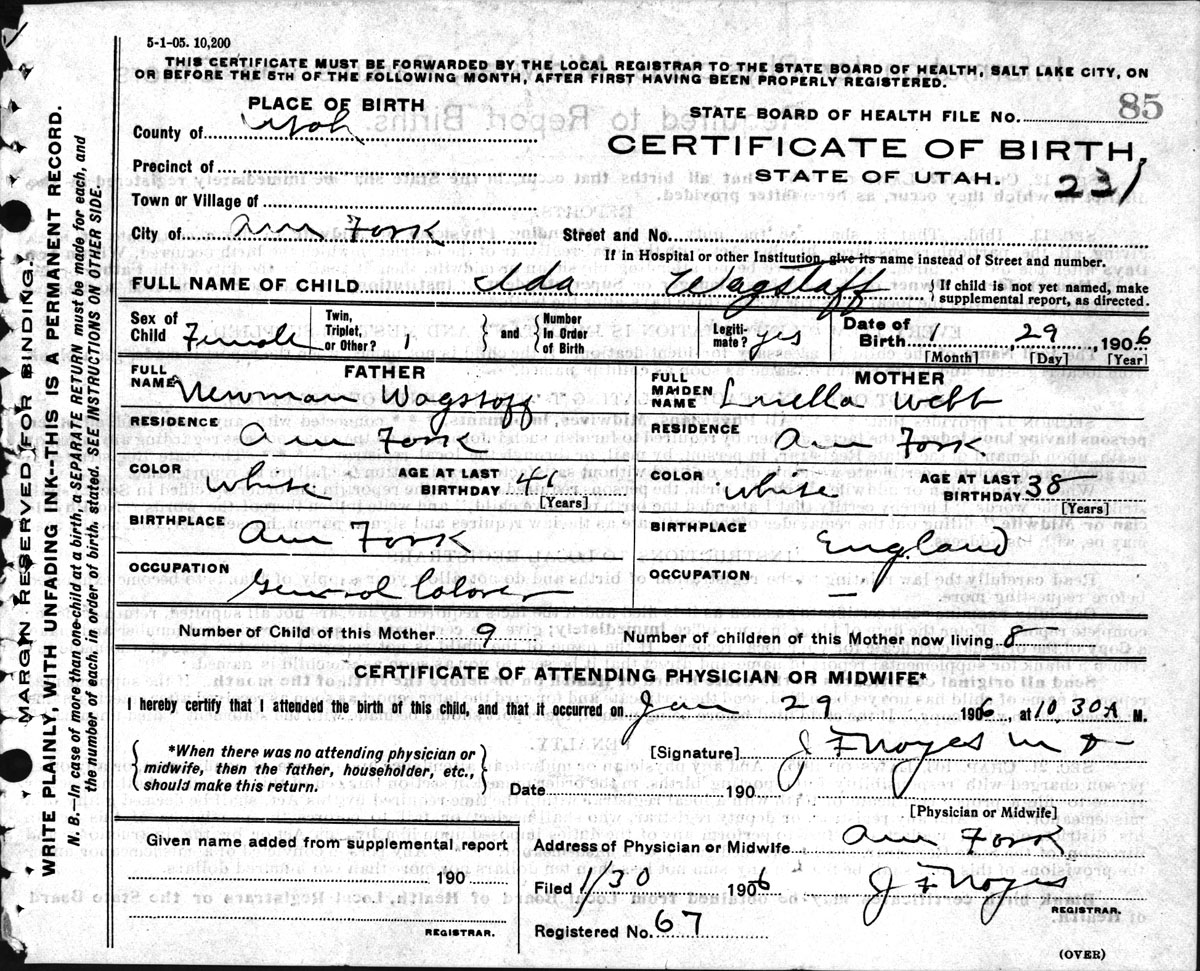 5-1-05. 10,200
THIS CERTIFICATE MUST BE FORWARDED BY THE LOCAL REGISTRAR TO THE STATE BOARD OF HEALTH, SALT LAKE CITY, ON
OR BEFORE THE 5TH OF THE FOLLOWING MONTH, AFTER FIRST HAVING BEEN PROPERLY REGISTERED.
PLACE OF BIRTH
STATE BOARD OF HEALTH FILE NO. 85
County of Utah
CERTIFICATE OF BIRTH
Precinct of
STATE OF UTAH. 231
Town or Village of
City of Am Fork Street and No.
If in Hospital or other Institution, give its name instead of Street and number.
FULL NAME OF CHILD Ida Wagstaff { If child is not yet named, make supplemental report, as directed.
Sex of Child Female Twin, Triplet, or Other? 1 } and { Number In Order of Birth Legiti-mate? yes Date of Birth 1 29, 1906
[Month] [Day] [Year]
FATHER MOTHER
FULL NAME Newman Wagstaff FULL MAIDEN NAME Luella Webb
RESIDENCE Am Fork RESIDENCE Am Fork
COLOR white AGE AT LAST BIRTHDAY 41 [Years] COLOR white AGE AT LAST BIRTHDAY 38 [Years]
BIRTHPLACE Am Fork BIRTHPLACE England
OCCUPATION General Laborer OCCUPATION —
Number of Child of this Mother 9 Number of children of this Mother now living 8
CERTIFICATE OF ATTENDING PHYSICIAN OR MIDWIFE*
I hereby certify that I attended the birth of this child, and that it occurred on Jan 29 1906, at 10 30 A M.
{ *When there was no attending physician or midwife, then the father, householder, etc., should make this return. }
[Signature] J F Noyes M D
Date 190
[Physician or Midwife]
Given name added from supplemental report
Address of Physician or Midwife Am Fork
190
Filed 1/30 1906 J F Noyes
REGISTRAR.
REGISTRAR.
Registered No. 67
(OVER)
MARGIN RESERVED FOR BINDING.
WRITE PLAINLY, WITH UNFADING INK--THIS IS A PERMANENT RECORD.
N. B.—In case of more than one child at a birth, a SEPARATE RETURN must be made for each, and
the number of each, in order of birth, stated. SEE INSTRUCTIONS ON OTHER SIDE.